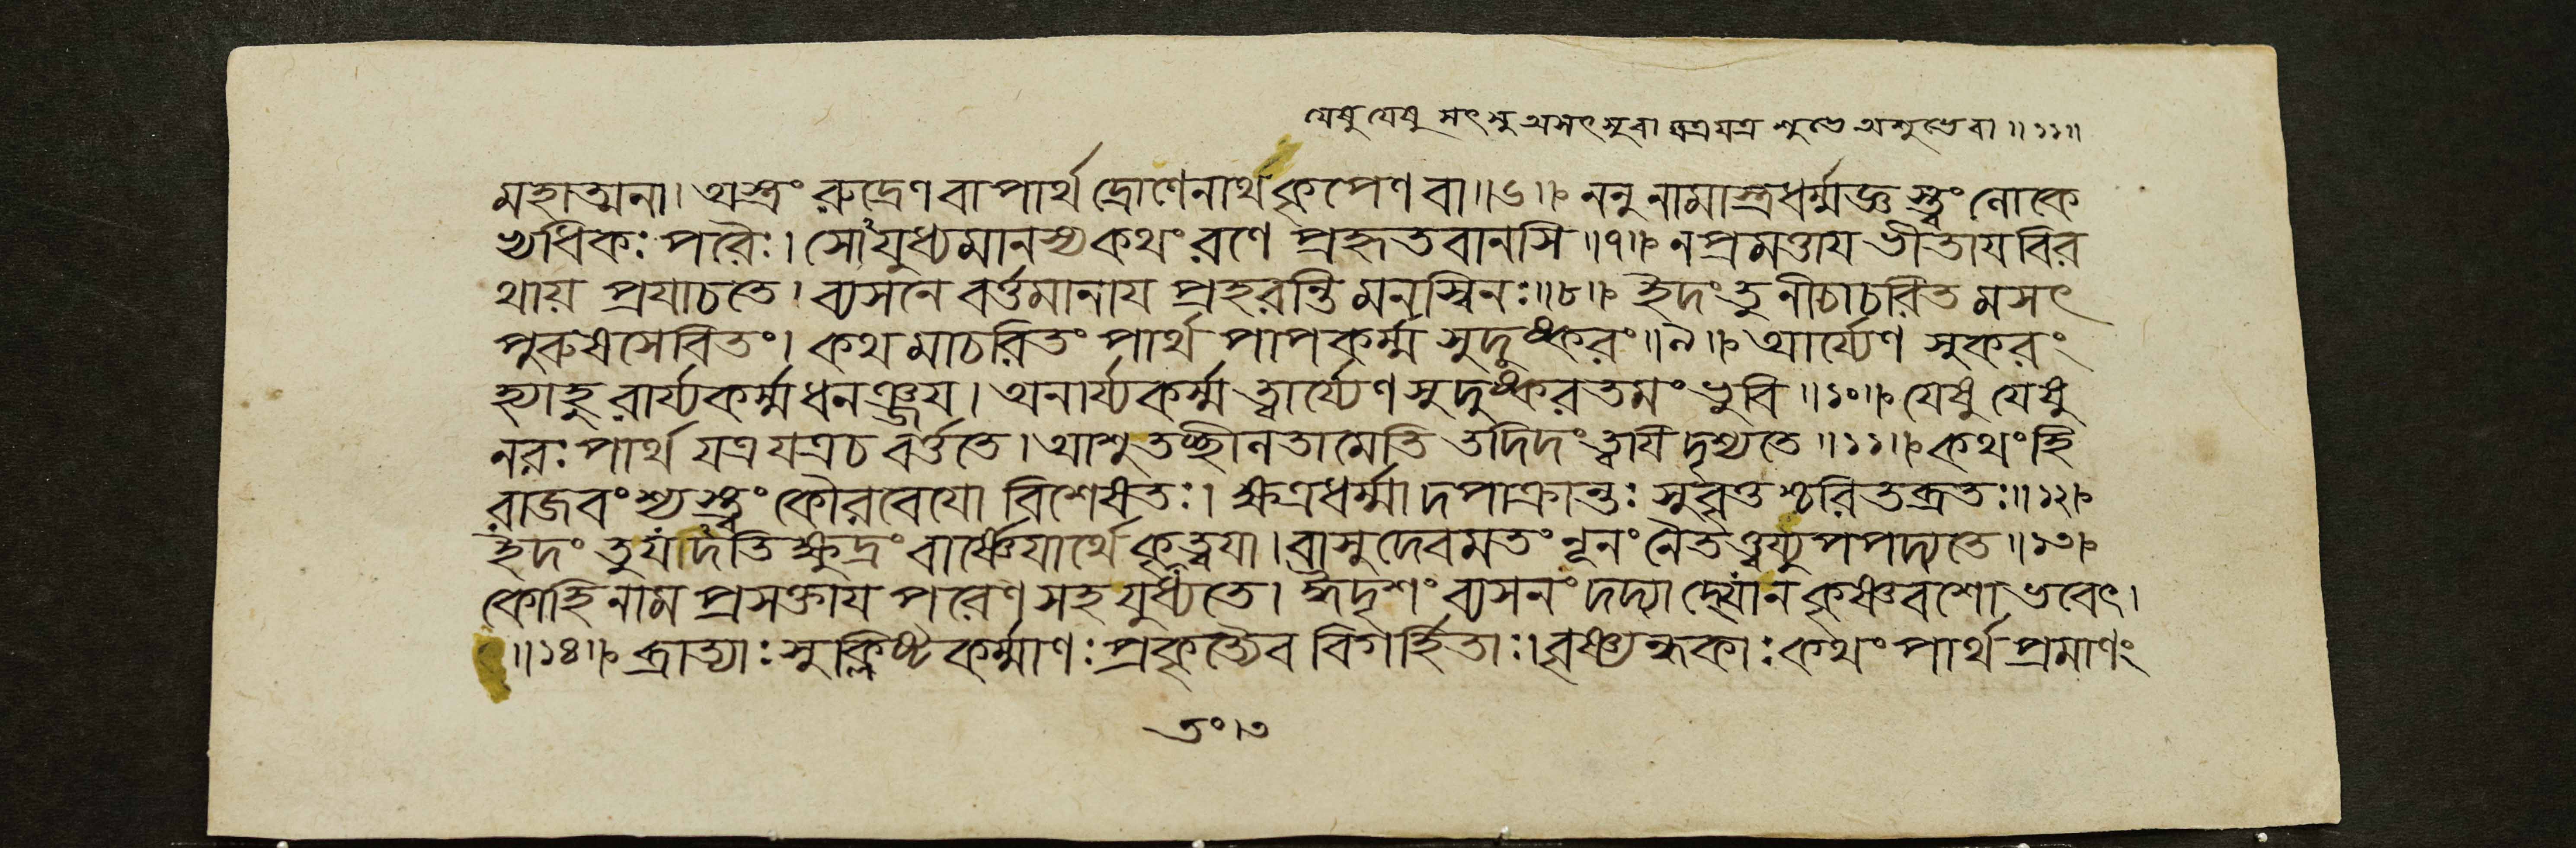 যেষু যেষু সৎসু অসৎসু বা যত্র যত্র শুণ্ডে অশুণ্ডে বা ॥১১॥
মহাত্মনা। অস্ত্রং রুদ্রেণ বা পার্থ দ্রোণেনাথ কৃপেণ বা॥৬॥ ননু নামাস্ত্রধর্ম্মজ্ঞস্ত্বং লোকে
ভ্যধিকঃ পরৈঃ। সোঽযুধ্যমানস্য কথং রণে প্রহৃতবানসি॥৭॥ ন প্রমত্তায ভীতায বির
থায় প্রযাচতে। ব্যসনে বর্ত্তমানায প্রহরন্তি মনস্বিনঃ॥৮॥ ইদং তু নীচাচরিতমসৎ
পুরুষসেবিতং। কথমাচরিতং পার্থ পাপকর্ম্ম সুদুষ্করং॥৯॥ আর্য্যেণ সুকরং
হ্যাহুরার্য্যকর্ম্ম ধনঞ্জয। অনার্য্যকর্ম্ম ত্বার্য্যেণ সুদুষ্করতমং ভুবি॥১০॥ যেষু যেষু
নরঃ পার্থ যত্র যত্র চ বর্ত্ততে। আশু তচ্ছীলতামেতি তদিদং ত্বযি দৃশ্যতে॥১১॥ কথং হি
রাজবংশ্যস্ত্বং কৌরবেযো বিশেষতঃ। ক্ষত্রধর্ম্মাদপাক্রান্তঃ সুবৃত্তশ্চরিতব্রতঃ॥১২॥
ইদং তু যদতিক্ষুদ্রং বার্ষ্ণেযার্থে কৃতং ত্বযা। বাসুদেবমতং নূনং নৈতত্ত্বয্যুপপদ্যতে॥১৩॥
কো হি নাম প্রসক্তায পরেণ সহ যুধ্যতে। ঈদৃশং ব্যসনং দদ্যাদ্যো ন কৃষ্ণবশো ভবেৎ।
॥১৪॥ ব্রাত্যাঃ সুক্লিষ্টকর্ম্মাণঃ প্রকৃত্যৈব বিগর্হিতাঃ। বৃষ্ণ্যন্ধকাঃ কথং পার্থ প্রমাণং
তং।৩